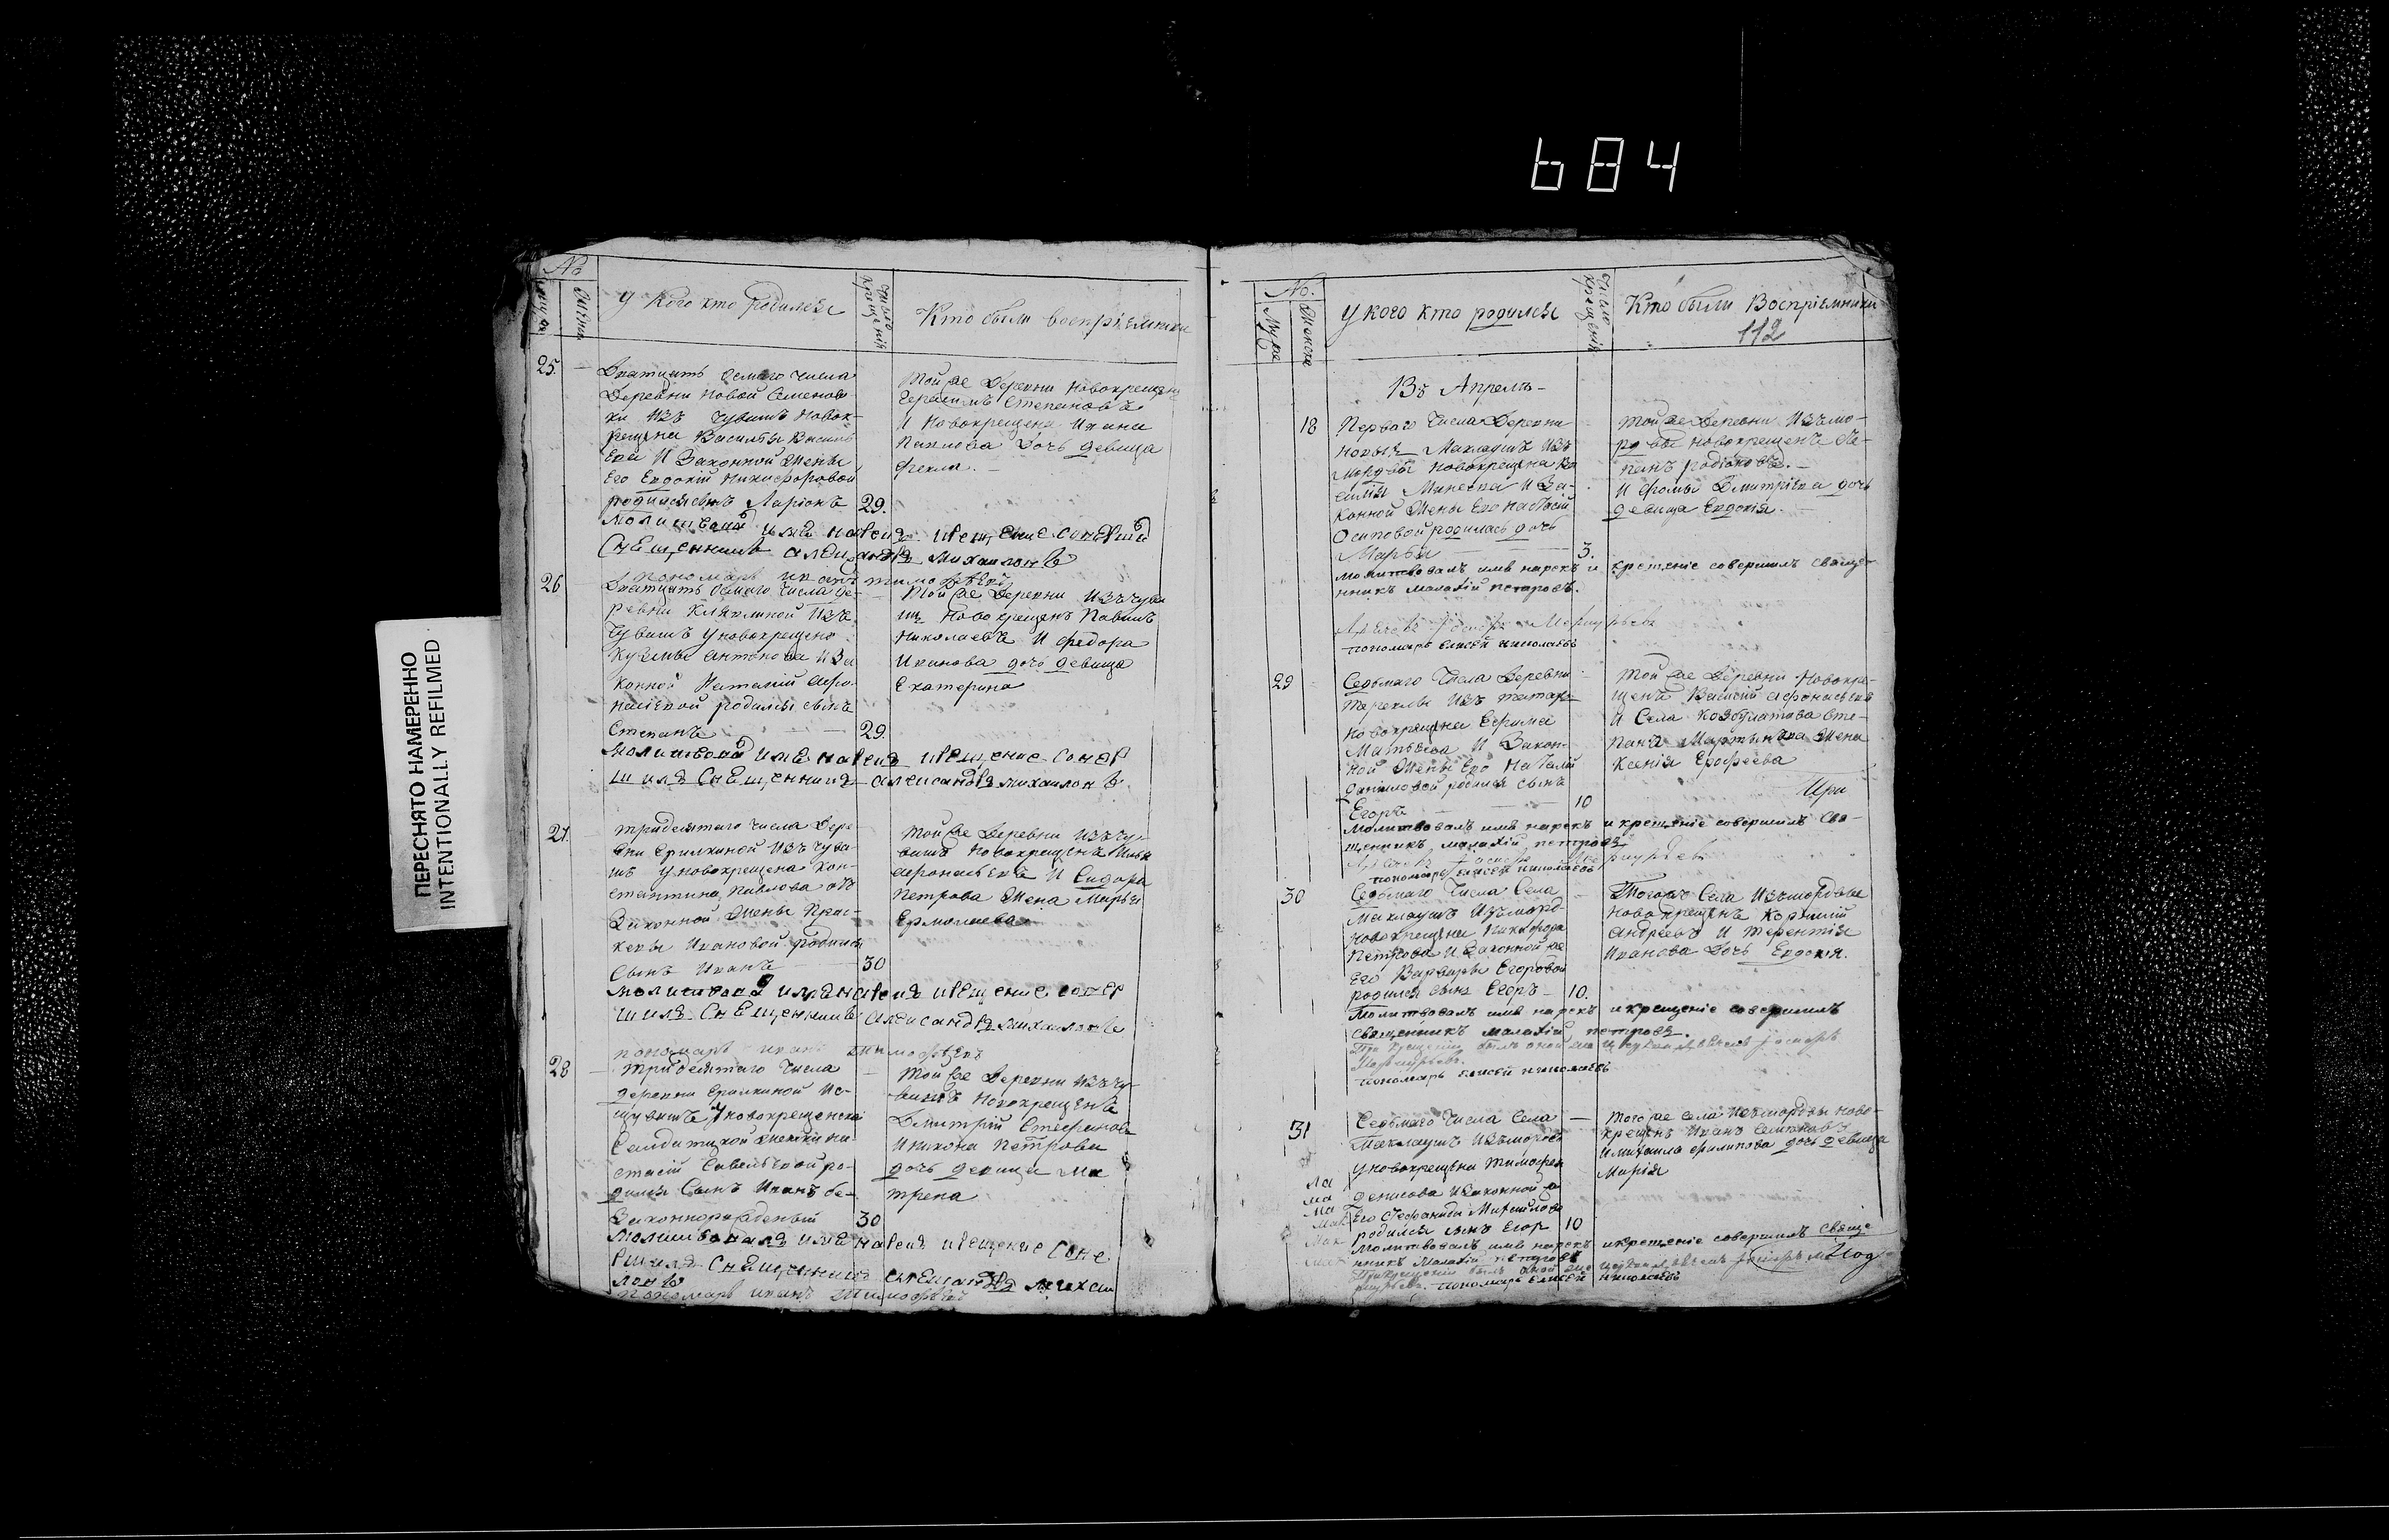 684
ПЕРЕСНЯТО НАМЕРЕННО
INTENTIONALLY REFILMED
№
У Кого кто родился
число крещенія
Кто были воспріемники
25.
Дватцать осмаго числа
Деревни Новой Семенов-
ки Изъ Чувашъ Новок-
рещена Василья Василь
ева И Законной Жены
Его Евдокіи Никифоровой
родился сынъ Ларіонъ 29.
Той же Деревни Новокрещенъ
Герасимъ Степановъ
И Новокрещена Ивана
Павлова Дочь девица
Фекла.
Молитвовалъ имя нарекъ крещение совершилъ
Священникъ Александръ Михаиловъ
пономарь иванъ тимофеевъ
26
Дватцать осмаго числа де-
ревни Изъ
Чувашъ у новокрещена
Кузьмы Антонова И За
конной Наталіи Афо-
насіевой родился сынъ
Степанъ 29.
Той же Деревни Изъ чува
шъ Новокрещенъ Павилъ
Николаевъ И Федора
Иванова дочь девица
Екатерина
Молитвовалъ имя нарекъ крещение совер
шилъ Священникъ Александръ Михаиловъ
27.
тридесятаго числа Дере-
вни Ерилкиной Изъ чува-
шъ у новокрещена Кон-
стантина Павлова отъ
Законной Жены Прас-
ковьи Ивановой родился
сынъ Иванъ 30
Той же Деревни Изъ чу-
вашъ Новокрещенъ
Афонасьевъ И Сидора
Петрова Жена Марья
Ермолаева
Молитвовалъ имя нарекъ крещение совер
шилъ Священникъ Александръ Михаиловъ
пономарь иванъ тимофеевъ
28
Тридесятаго Числа
деревни Ерилкиной Ис-
чувашъ у новокрещенской
Салдатцкой Женки На-
стасіи Савельевой ро-
дился Сынъ Иванъ бе-
Законнорожденный 30
Той же Деревни Изъ чу-
вашъ Новокрещенъ
Дмитрій Стефановъ
И никона Петрова
дочь девица Ма
трена
Молитвовалъ имя нарекъ крещение сове
ршилъ Священникъ Александръ Михаи
ловъ
пономарь иванъ Тимофеевъ
№.
Муже
Женска
У кого кто родился
число крещенія
Кто были Воспріемники
112
Въ Апреле
18
Перваго Числа Деревни
Новыя Маклаушъ Изъ
мордвы новокрещена Ва
силья Минеева И За-
конной Жены Его Настасіи
Осиповой родилась дочь
Марья 3.
Той же Деревни Изъ мо-
рдвы новокрещенъ Сте-
панъ Родіоновъ.
И Фомы Дмитріева дочь
девица Евдокія.
молитвовалъ имя нарекъ и крещеніе совершилъ свяще-
нникъ малахій петровъ.
пономарь елисей николаевъ
29
Седьмаго Числа Деревни
Изъ татаръ
новокрещена Ефима
Матвеева И Закон-
ной Жены Его Наталіи
Даниловой родился сынъ
Егоръ 10
Той же Деревни Новокре-
щенъ Василій Афонасьевъ
И Села Козбулатова Сте-
пана Мартынова Жена
Ксенія Ерофеева
При
Молитвовалъ имя нарекъ и крещеніе совершилъ Свя-
щенникъ малахій петровъ
пономарь елисей николаевъ
30
Седьмаго Числа Села
Маклаушъ Изъ морд-
новокрещена Никифора
Петрова И Законной же
Его Варвары Егоровой
родился сынъ Егоръ 10.
Тогожъ Села Изъ мордвы
новокрещенъ Корнилій
Андреевъ И Терентія
Иванова Дочь Евдокія.
Молитвовалъ имя нарекъ и крещеніе совершилъ
священникъ малахій петровъ.
пономарь елисей николаевъ
31
Седьмаго Числа Села
Маклаушъ Изъ мордвы
у новокрещена Тимофея
Денисова И Законной же
Его Стефаниды Михайловой
родился сынъ Егор 10
Того же Села Изъ мордвы ново-
крещенъ Иванъ Семеновъ
И михаила Филипова дочь девица
Марія
молитвовалъ имя нарекъ и крещеніе совершилъ свяще
нникъ Малахій петровъ
пономарь Елисей николаевъ